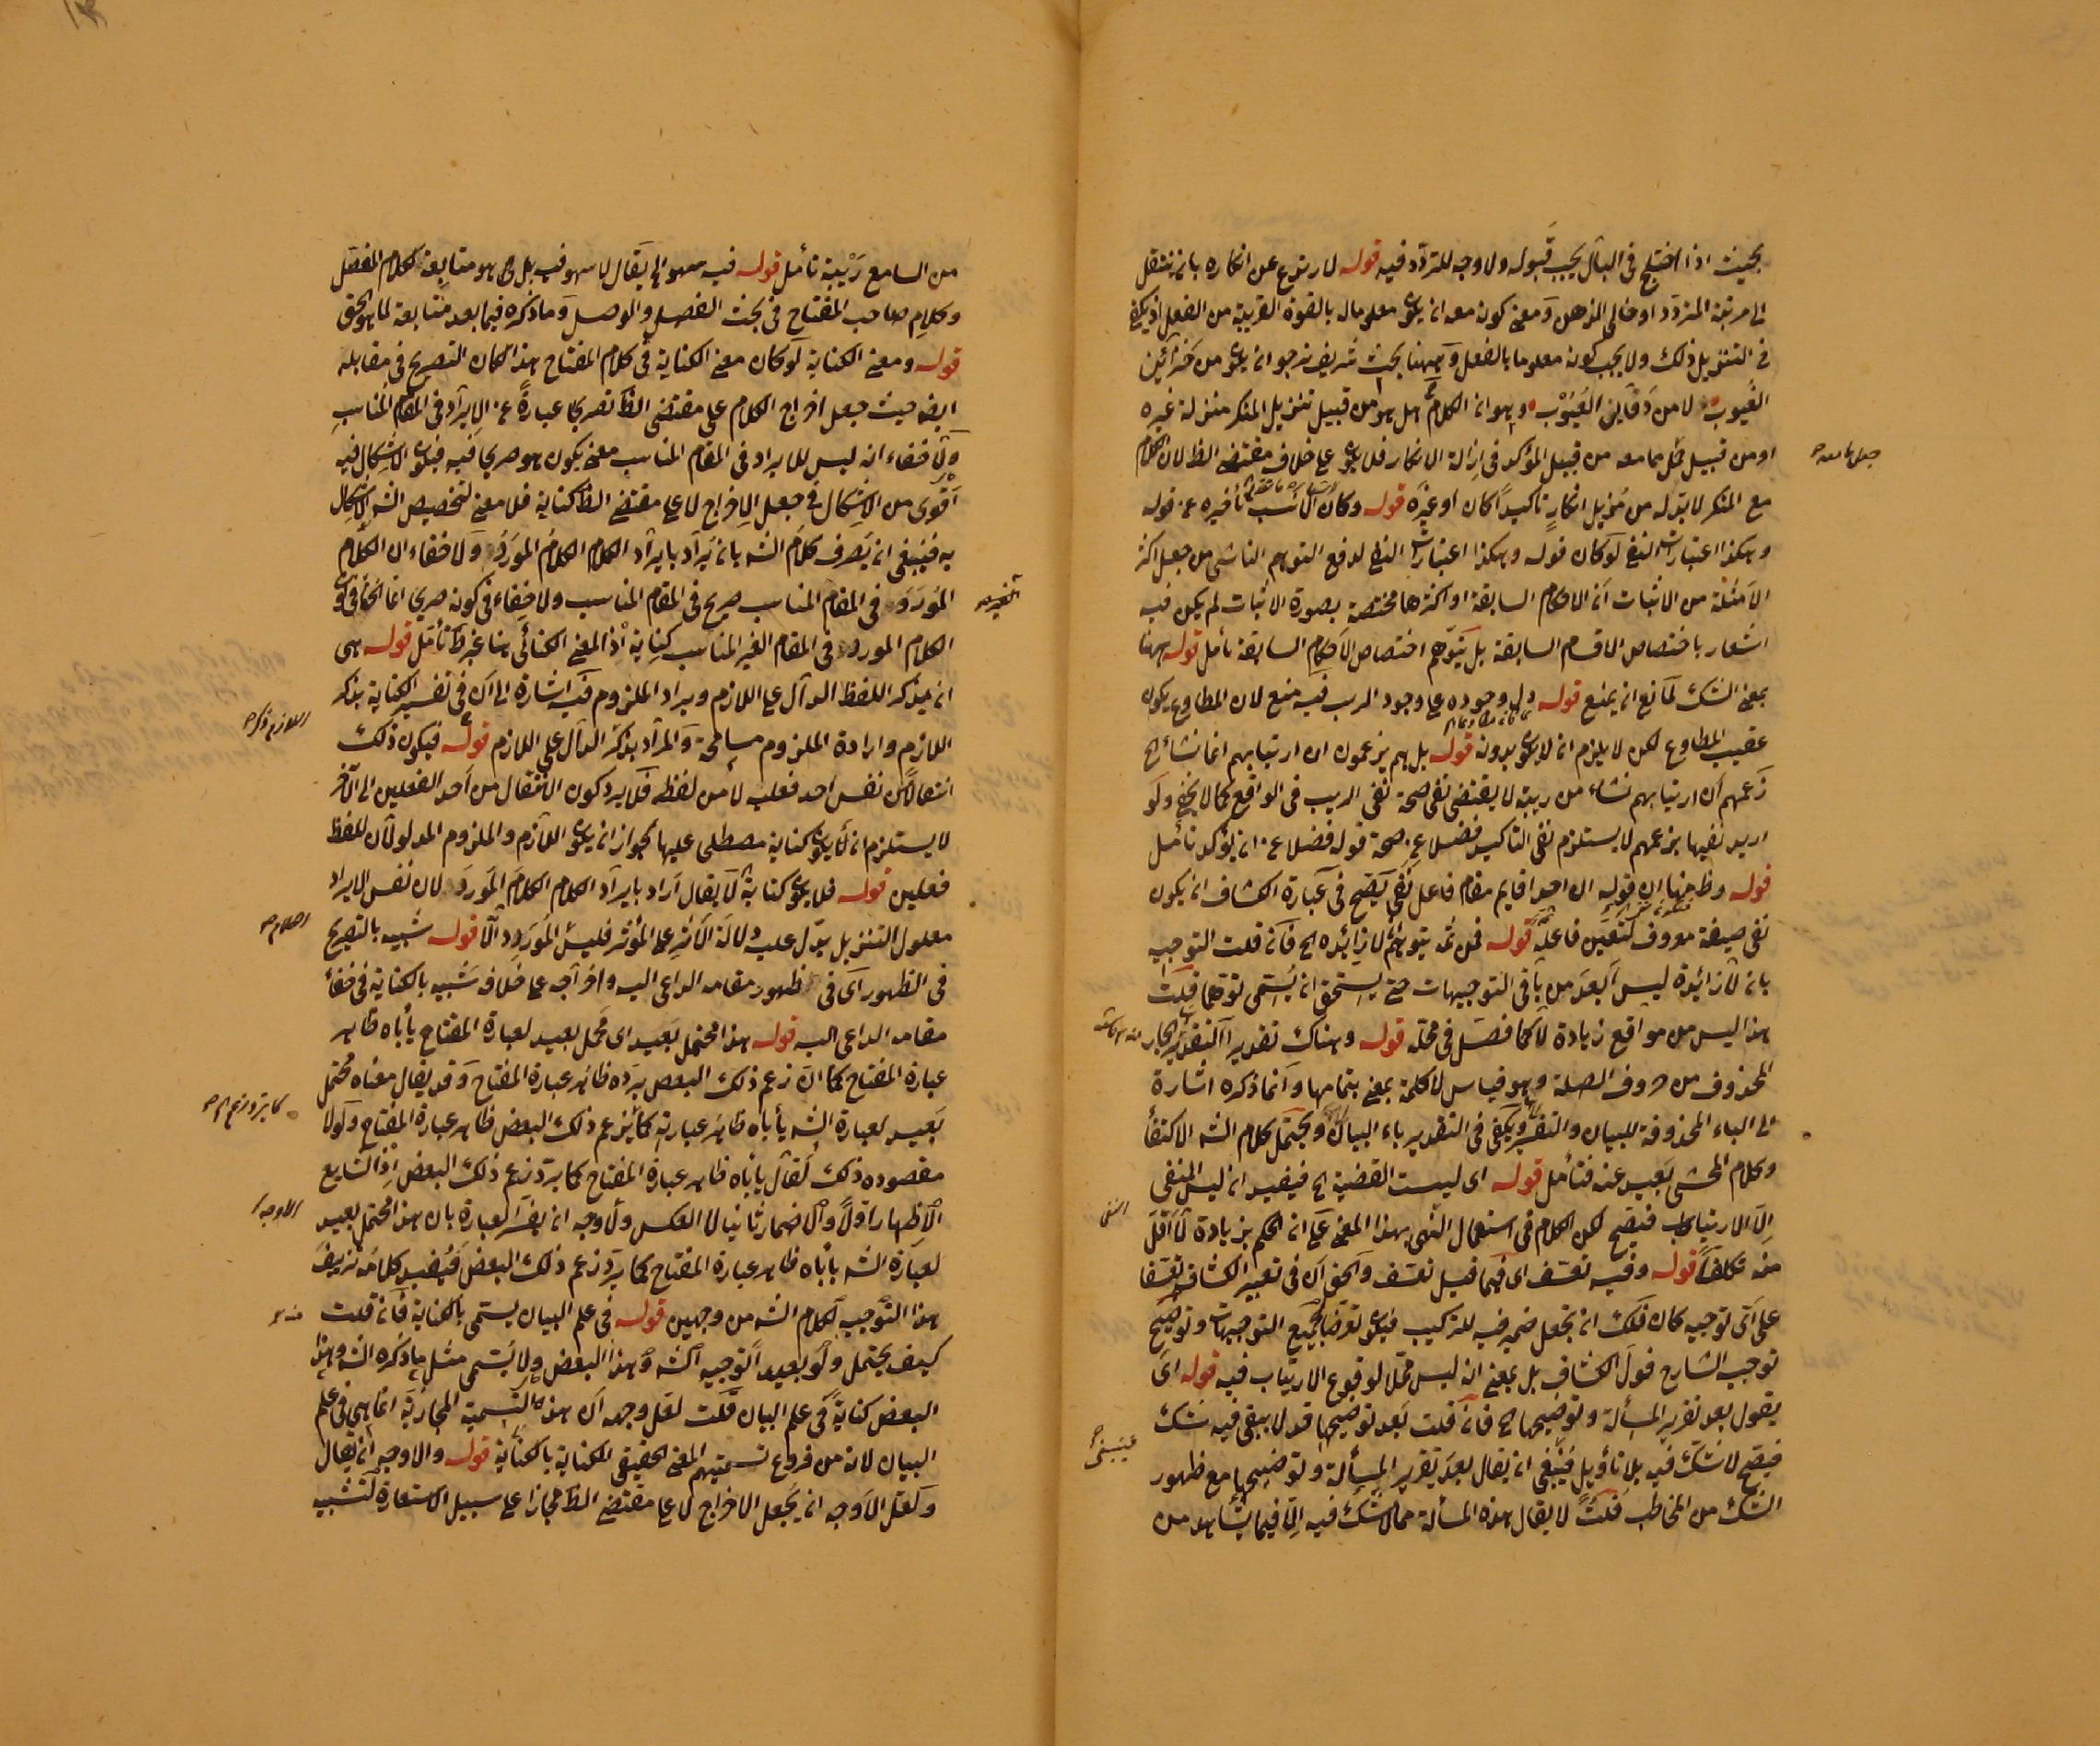 بحيث اذا اختلج في البال يجب قبوله ولا وجه للتردد فيه قوله لارتدع عن انكاره بان ينتقل
الى مرتبة المتردد او خالى الذهن ومعنى كونه معه ان يكون معلوما له بالقوة القريبة من الفعل اذ يكفى
في التنزيل ذلك ولا يجب كونه معلوما بالفعل وههنا بحث شريف نرجو ان يكون من خزائن
الغيوب لا من دفاين العيوب وهو ان الكلام هل هو من قبيل تنزيل المنكر منزلة غيره
او من قبيل جعل ما معه من قبيل المؤكد في ازالة الانكار فلا يكون على خلاف مقتضى الظ لان الكلام
مع المنكر لا بد له من مزيل انكار تاكيدا كان او غيره قوله وكان الانسب تأخيره عن قوله
وهكذا اعتبارات النفي لو كان قوله وهكذا اعتبارات النفي لدفع التوهم الناشى من جعل اكثر
الامثلة من الاثبات ان الاحكام السابقة او اكثرها مختصة بصورة الاثبات لم يكن فيه
اشعار باختصاص الاقسام السابقة بل يتوهم اختصاص الاحكام السابقة تأمل قوله ههنا
بمعنى الشك لمانع ان يمنع قوله دل وجوده على وجود الريب فيه منع لان المطاوع يكون
عقيب المطاوع لكن لا يلزم ان لا يكون بدونه قوله بل هم يزعمون ان ارتيابهم انما نشاء الخ
زعمهم ان ارتيابهم نشاء من ريبة لا يقتضى نفى صحة نفى الريب في الواقع كما لا يخفى ولو
اريد نفيها بزعمهم لا يستلزم نفى التاكيد فضلا عن صحة قوله فضلا عن ان يؤكد تأمل
قوله وظ منها ان قوله ان احدا قايم مقام فاعل نفى يتضح في عبارة الكشاف ان يكون
نفى صيغة معروف فاعله قوله فمن ثمه يتوهم لا زائدة الخ فان قلت التوجيه
بان لا زائدة ليس ابعد من باقى التوجيهات حتى يستحق ان يسمى توهما قلت
هذا ليس من مواقع زيادة لا كما فصل في محله قوله وهناك تقدير الجار
المحذوف من حروف الصلة وهو قياس لا كلمة بمعنى بتمامها وانما ذكره اشارة
الى الباء المحذوفة للبيان والتفسير ويكفى في التقدير باء البيان ويحتمل كلام الشه الاكتفاء
وكلام المحشى بعيد عنه فتأمل قوله اى ليست القضية الخ فيفيد ان ليس المنفى
الا الارتياب فيتضح لكن الكلام في استعمال النهى بهذا المعنى على ان الحكم بزيادة لا اقل
منه تكلفا قوله وفيه تعسف اى فيما قيل تعسف والحق ان في تعبير الكشاف تعسفا
على اى توجيه كان فلك ان تجعل ضمير فيه للتركيب فيكون تعرضا لجميع التوجيهات وتوضيح
توجيه الشارح قول الكشاف بل بمعنى انه ليس محلا لوقوع الارتياب فيه قوله اى
يقول بعد تقرير المسألة وتوضيحها الخ فان قلت بعد توضيحها قد لا يبقى فيه شك
فيصح لا شك فيه بلا تأويل فينبغى ان يقال بعد تقرير المسألة وتوضيحها مع ظهور
الشك من المخاطب قلت لا يقال هذه المسألة مما لا شك فيه الا فيما يشاهد من
من السامع ريبة تأمل قوله فيه سهو الى يقال لا سهو فيه بل هو متابعة لكلام المفصل
وكلام صاحب المفتاح في بحث الفصل والوصل وما ذكره فيما بعد متابعة لما هو الحق
قوله ومعنى الكناية لو كان معنى الكناية في كلام المفتاح هذا لكان التصريح في مقابله
ايضا حيث جعل اخراج الكلام على مقتضى الظ تصريحا عبارة عن الايراد في المقام المناسب
ولا خفاء انه ليس للايراد في المقام المناسب معنى يكون هو صريحا فيه فيكون الاشكال فيه
اقوى من الاشكال في جعل الاخراج لا على مقتضى الظ كناية فلا معنى لتخصيص الشه الاشكال
به فينبغى ان يصرف كلام الشه بان يراد بايراد الكلام الكلام المورد ولا خفاء ان الكلام
المورد في المقام المناسب صريح في المقام المناسب ولا خفاء في كونه صريحا انما الخفاء في كون
الكلام المورد في المقام الغير المناسب كناية اذ المعنى الكنائى هنا غير ظ تأمل قوله هى
ان يذكر اللفظ الدال على اللازم ويراد الملزوم فيه اشارة الى ان في تفسير الكناية بذكر
اللازم وارادة الملزوم مسامحة والمراد بذكر الدال على اللازم قوله فيكون ذلك
انتقالا من نفس احد فعليه لا من لفظه فلا يرد كون الانتقال من احد الفعلين الى الآخر
لا يستلزم ان لا يكون كناية مصطلح عليها لجواز ان يكون اللازم والملزوم المدلولان للفظ
فعلين قوله فلا يكون كناية لا يقال اراد بايراد الكلام الكلام المورد لان نفس الايراد
معلول التنزيل يدل عليه دلالة الاثر على المؤثر فليس المورد الا قوله شبيه بالتصريح
في الظهور اى في ظهور مقامه الداعى اليه واخراجه على خلافه شبيه بالكناية في خفاء
مقامه الداعى اليه قوله هذا محتمل بعيد اى محمل بعيد لعبارة المفتاح يأباه ظاهر
عبارة المفتاح كما ان زعم ذلك البعض يرده ظاهر عبارة المفتاح وقد يقال معناه محتمل
بعيد لعبارة الشه يأباه ظاهر عبارته كما يزعم ذلك البعض ظاهر عبارة المفتاح ولولا
مقصوده ذلك لقال يأباه ظاهر عبارة المفتاح كما يرد زعم ذلك البعض اذ الشايع
الاظهار اولا والاضمار ثانيا لا العكس ولا وجه ان يفسر العبارة بان هذا محتمل بعيد
لعبارة الشه يأباه ظاهر عبارة المفتاح كما يرد زعم ذلك البعض فيفيد كلامه تزييف
هذا التوجيه لكلام الشه من وجهين قوله في علم البيان يسمى بالكناية فان قلت
كيف يحتمل ولو بعيدا توجيه الشه وهذا البعض ولا يسمى مثل ما ذكره الشه وهذا
البعض كناية في علم البيان قلت لعل وجهه ان هذه التسمية المجازية انما هي في علم
البيان لانه من فروع تسميتهم المعنى الحقيقى للكناية بالكناية قوله والاوجه ان يقال
ولعل الاوجه ان يجعل الاخراج لا على مقتضى الظ مجازا على سبيل الاستعارة لتشبيه